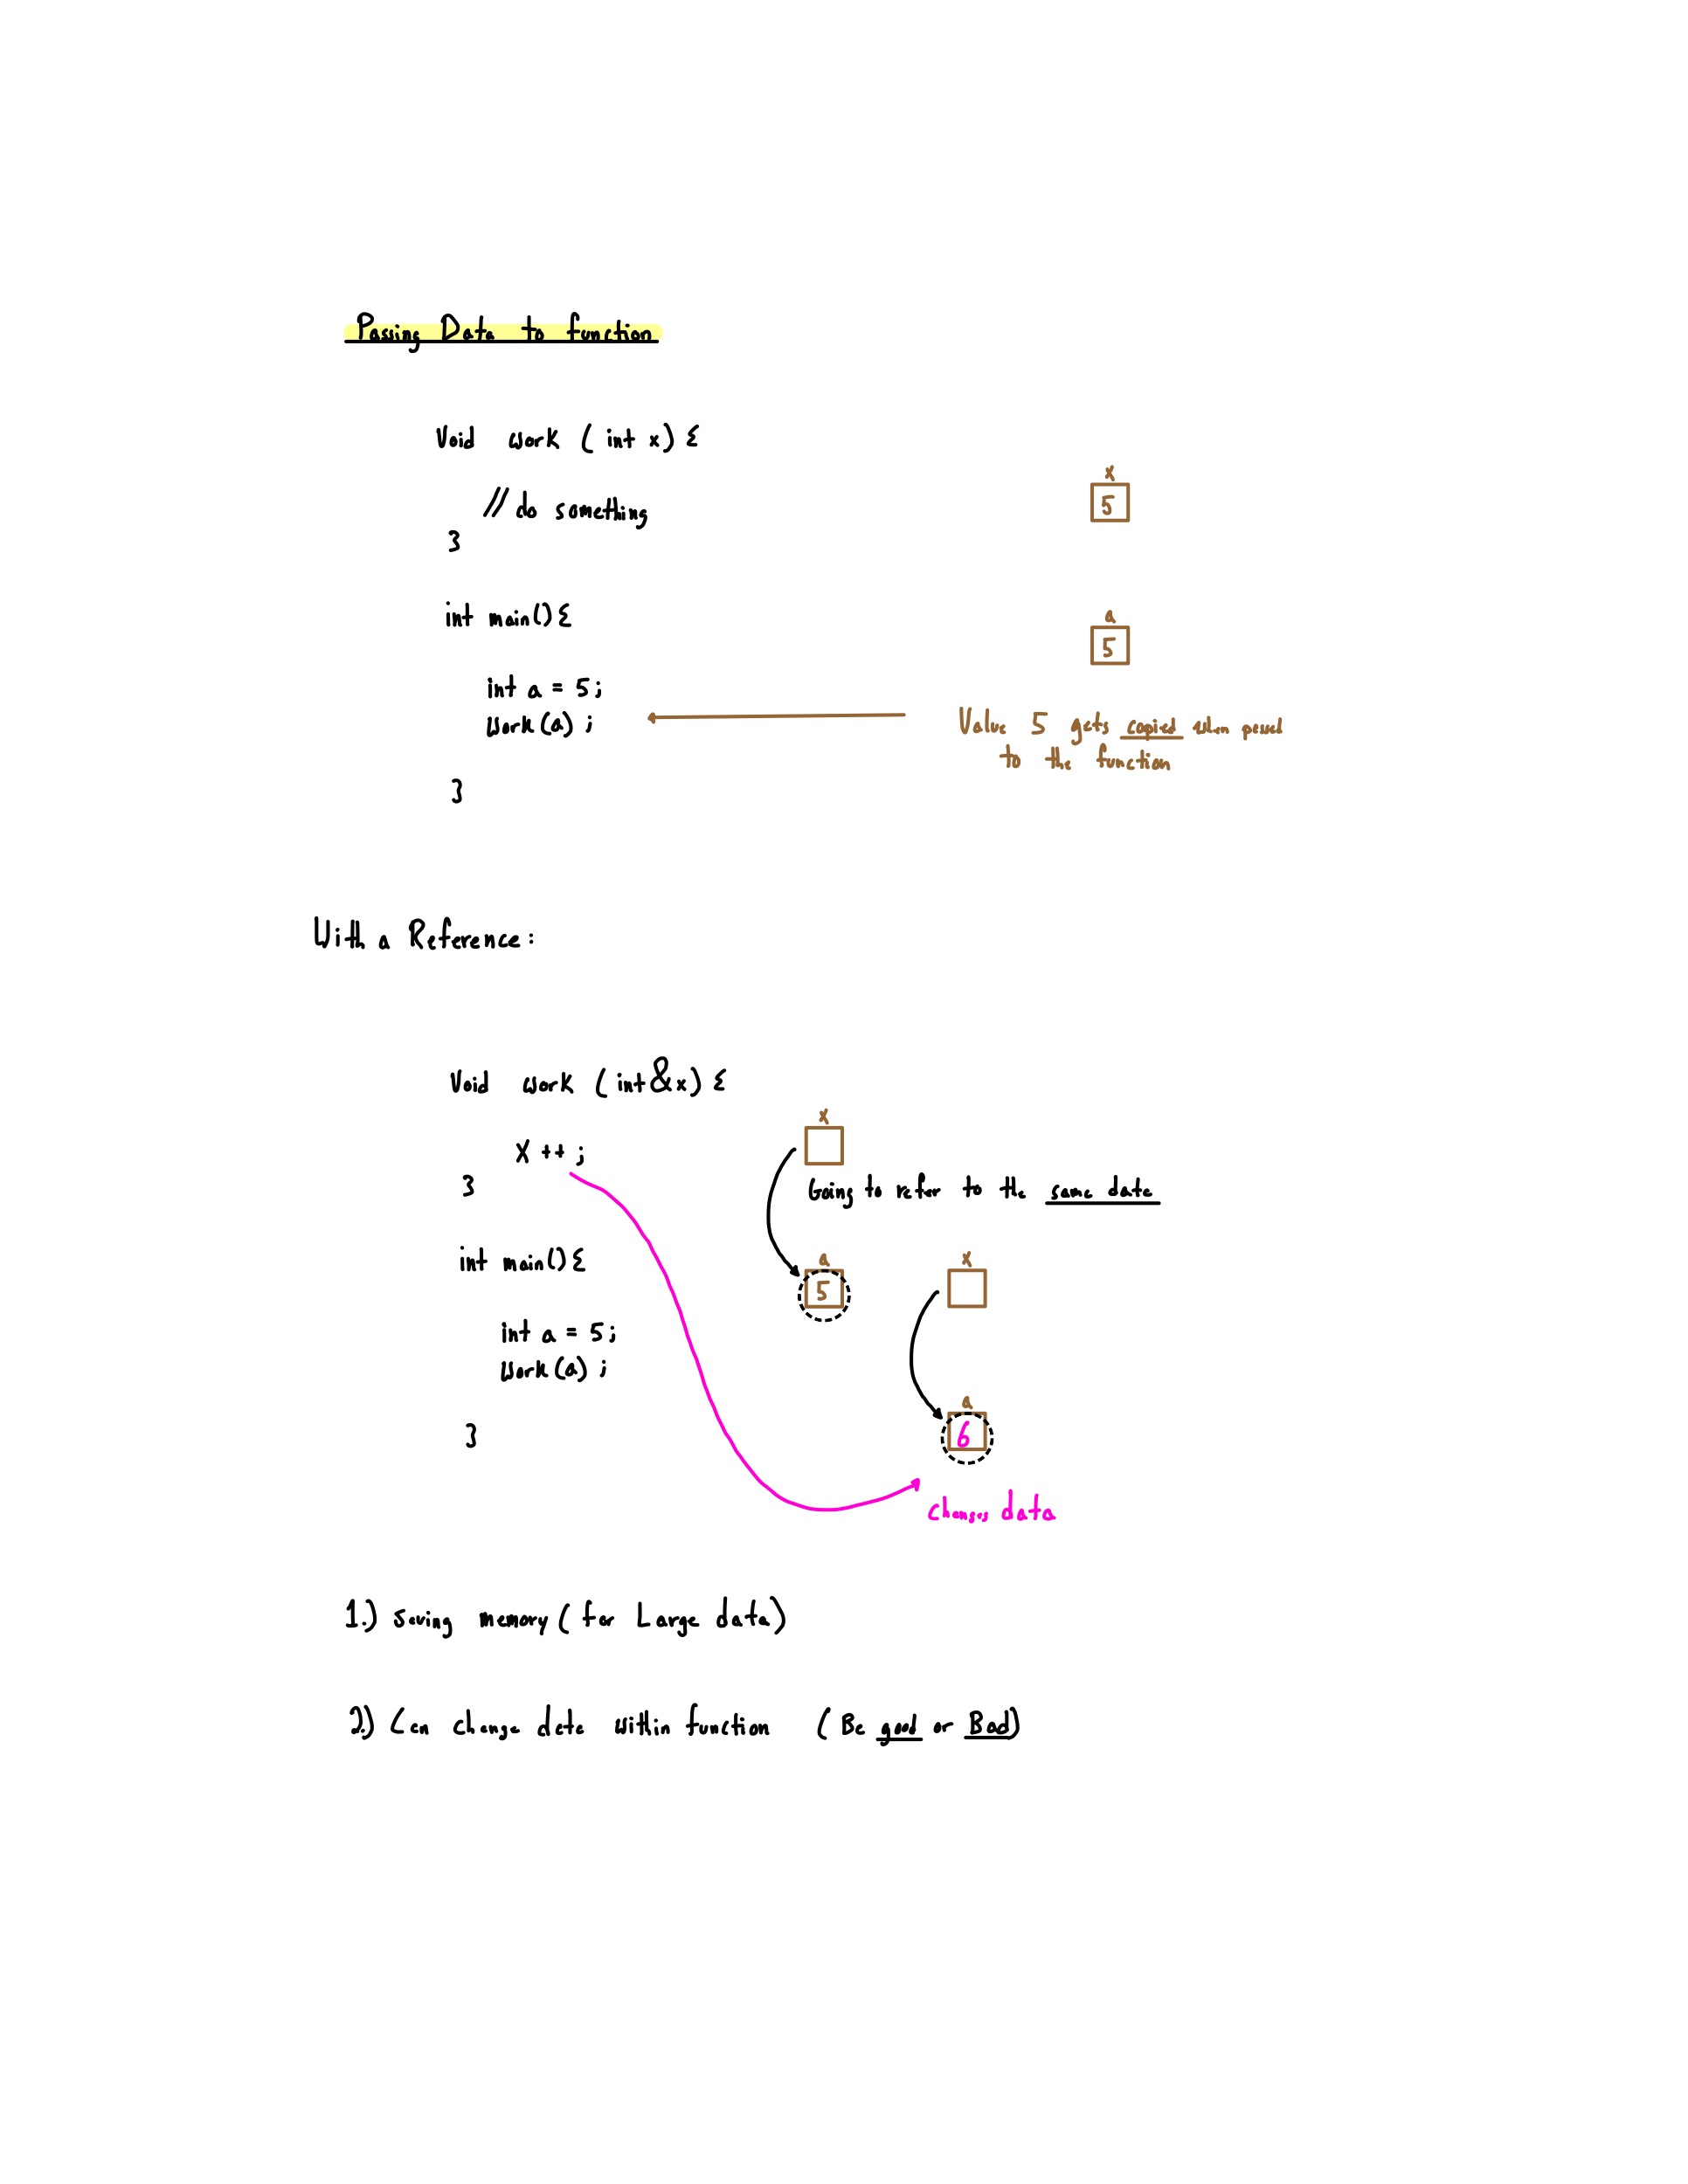 Passing Data to function
Void work ( int x) {
x
5
// do something
}
int main() {
a
5
int a = 5 ;
Work (a) ;
Value 5 gets copied when passed
to the function
}
With a Reference :
Void work ( int & x) {
x
X ++ ;
Going to refer to the same data
}
int main() {
a
5
x
int a = 5 ;
Work (a) ;
a
6
}
changes data
1.) Saving memory ( for Large data)
2.) Can change data within function ( Be good or Bad)